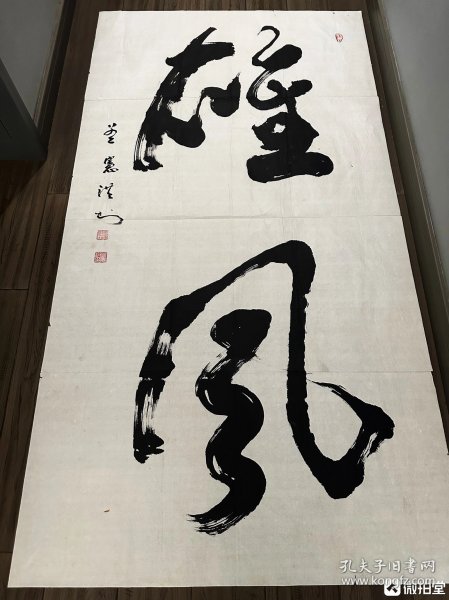 雄
风
孔夫子旧书网
www.kongfz.com
微拍堂